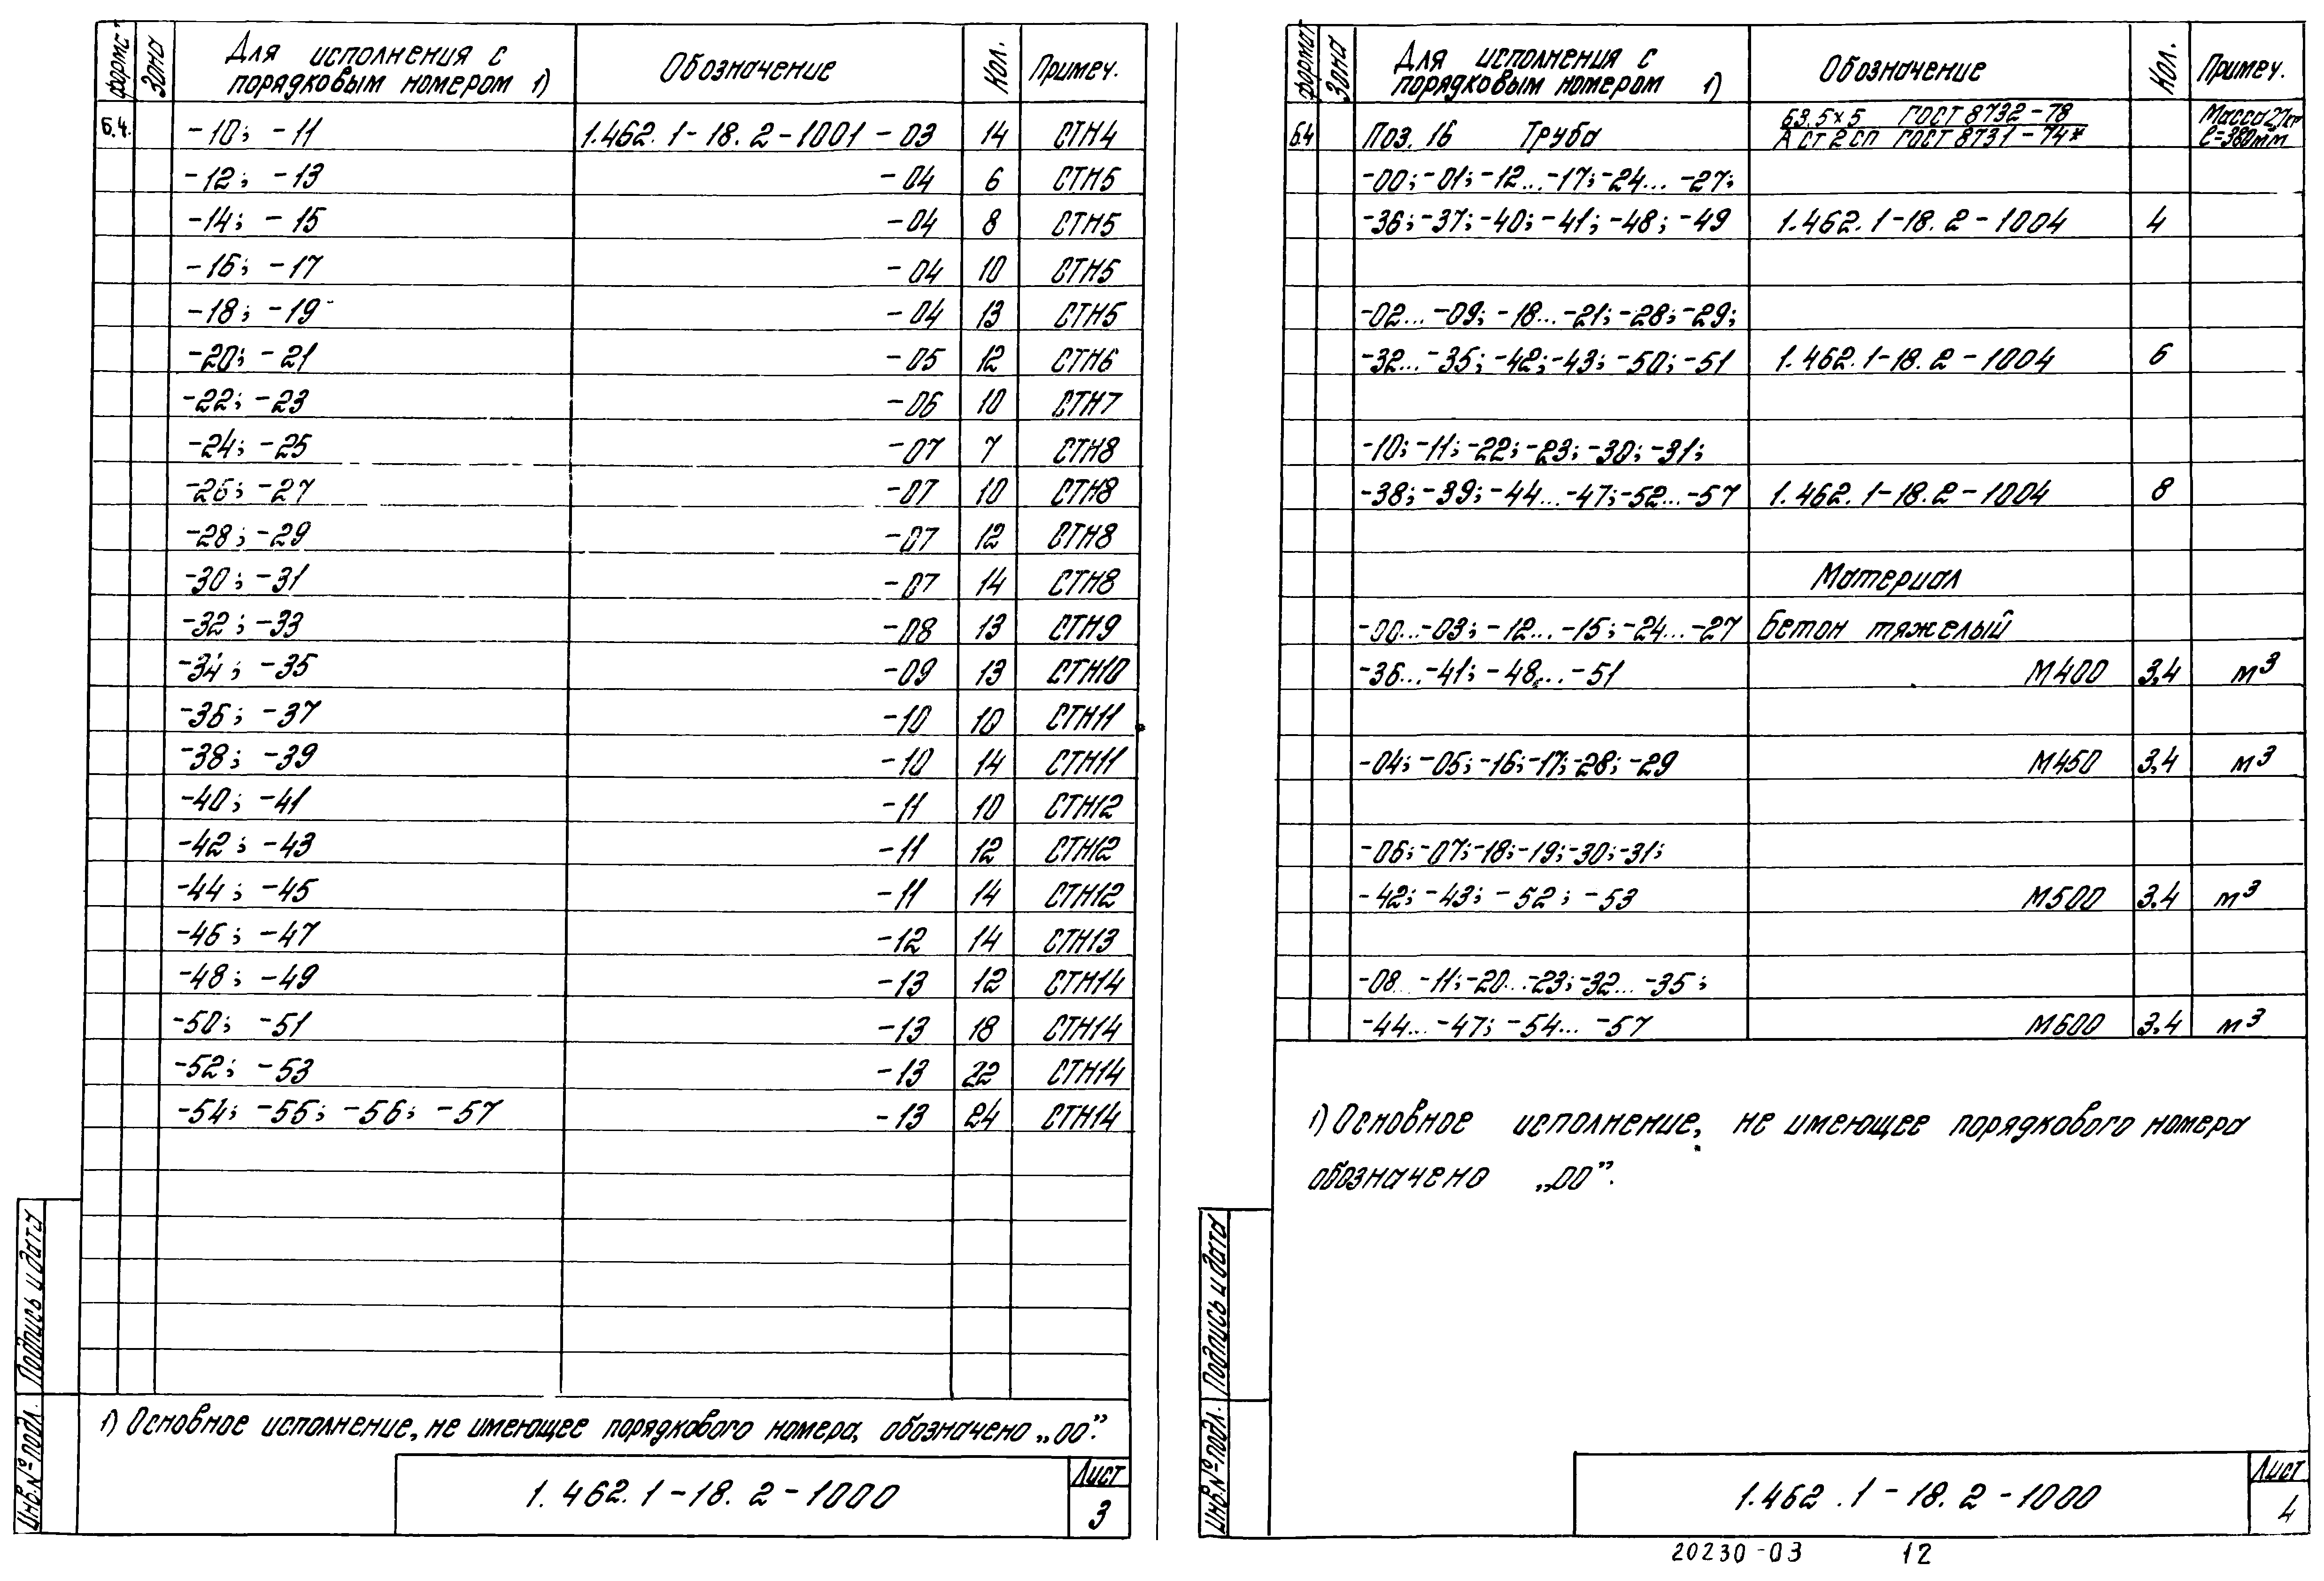 формат Зона Для исполнения с порядковым номером 1) Обозначение Кол. Примеч.
Б.4. -10; -11 1.462.1-18.2-1001-03 14 СТН4
-12; -13 -04 6 СТН5
-14; -15 -04 8 СТН5
-16; -17 -04 10 СТН5
-18; -19 -04 13 СТН5
-20; -21 -05 12 СТН6
-22; -23 -06 10 СТН7
-24; -25 -07 7 СТН8
-26; -27 -07 10 СТН8
-28; -29 -07 12 СТН8
-30; -31 -07 14 СТН8
-32; -33 -08 13 СТН9
-34; -35 -09 13 СТН10
-36; -37 -10 10 СТН11
-38; -39 -10 14 СТН11
-40; -41 -11 10 СТН12
-42; -43 -11 12 СТН12
-44; -45 -11 14 СТН12
-46; -47 -12 14 СТН13
-48; -49 -13 12 СТН14
-50; -51 -13 18 СТН14
-52; -53 -13 22 СТН14
-54; -55; -56; -57 -13 24 СТН14
1) Основное исполнение, не имеющее порядкового номера, обозначено „00”.
Инв.№подл. Подпись и дата
1.462.1-18.2-1000
Лист
3
формат Зона Для исполнения с порядковым номером 1) Обозначение Кол. Примеч.
Б4 Поз. 16 Труба 63.5×5 ГОСТ 8732-78 Масса 2,7кг
А Ст 2 сп ГОСТ 8731-74* ℓ=380мм
-00; -01; -12...-17; -24...-27;
-36; -37; -40; -41; -48; -49 1.462.1-18.2-1004 4
-02...-09; -18...-21; -28; -29;
-32...-35; -42; -43; -50; -51 1.462.1-18.2-1004 6
-10; -11; -22; -23; -30; -31;
-38; -39; -44...-47; -52...-57 1.462.1-18.2-1004 8
Материал
-00...-03; -12...-15; -24...-27 Бетон тяжелый
-36...-41; -48...-51 М400 3,4 м³
-04; -05; -16; -17; -28; -29 М450 3,4 м³
-06; -07; -18; -19; -30; -31;
-42; -43; -52; -53 М500 3,4 м³
-08...-11; -20...-23; -32...-35;
-44...-47; -54...-57 М600 3,4 м³
1) Основное исполнение, не имеющее порядкового номера
обозначено „00”.
Инв.№подл. Подпись и дата
1.462.1-18.2-1000
Лист
4
20230-03 12